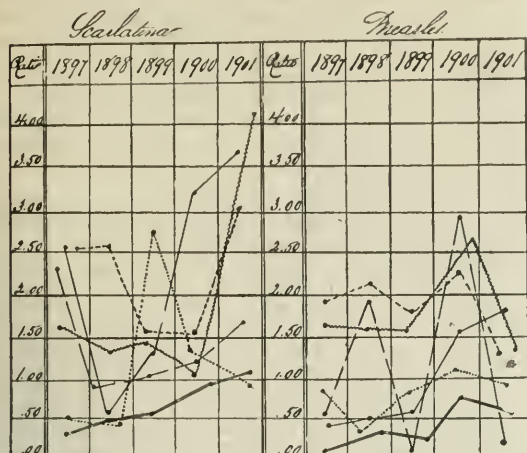 Scarlatina Measles.
Rate 1897 1898 1899 1900 1901 Rate 1897 1898 1899 1900 1901
4.00 4.00
3.50 3.50
3.00 3.00
2.50 2.50
2.00 2.00
1.50 1.50
1.00 1.00
.50 .50
.00 .00